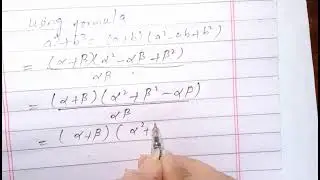 Using formula
a³+b³ = (a+b)(a²-ab+b²)
= (α+β)(α²-αβ+β²)
αβ
= (α+β)(α²+β²-αβ)
αβ
= (α+β)(α²+